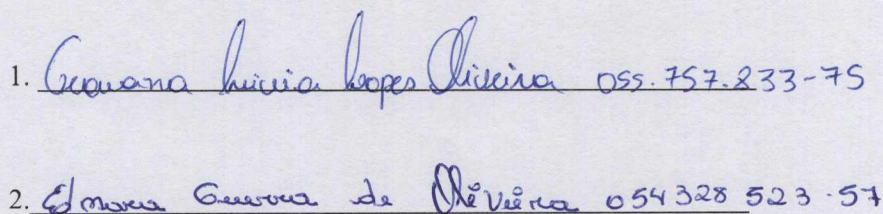 1. Geovana Lívia Lopes Oliveira 055.757.833-75
2. Edmara Guerra de Oliveira 054328 523.57